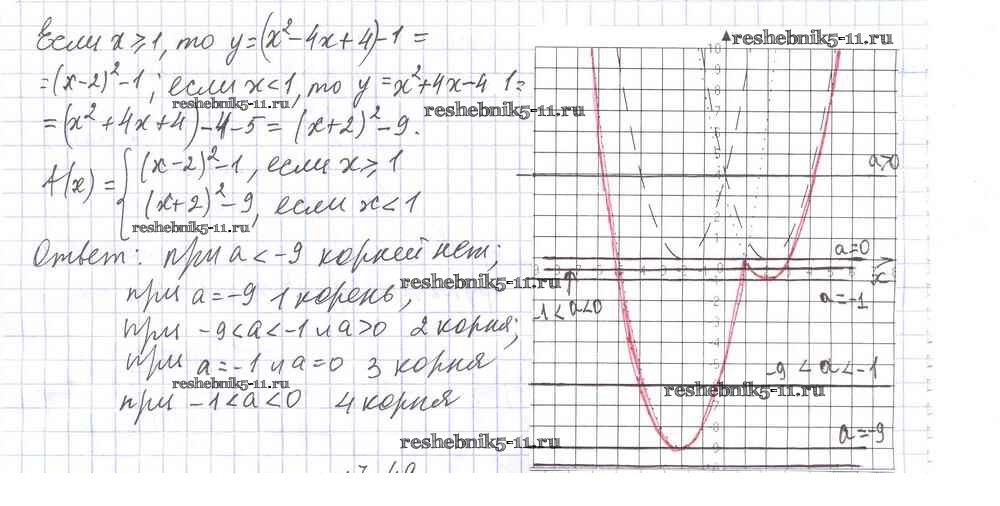 Если x ≥ 1, то y = (x² - 4x + 4) - 1 =
= (x-2)² - 1; если x < 1, то y = x² + 4x - 4 1 =
= (x² + 4x + 4) - 4 - 5 = (x+2)² - 9.
f(x) = { (x-2)² - 1, если x ≥ 1
(x+2)² - 9, если x < 1
Ответ: при a < -9 корней нет;
при a = -9 1 корень,
при -9 < a < -1 и a > 0 2 корня;
при a = -1 и a = 0 3 корня
при -1 < a < 0 4 корня
reshebnik5-11.ru
reshebnik5-11.ru
reshebnik5-11.ru
reshebnik5-11.ru
reshebnik5-11.ru
reshebnik5-11.ru
reshebnik5-11.ru
reshebnik5-11.ru
a>0
a=0
x
-1 < a < 0
a=-1
-9 < a < -1
a=-9